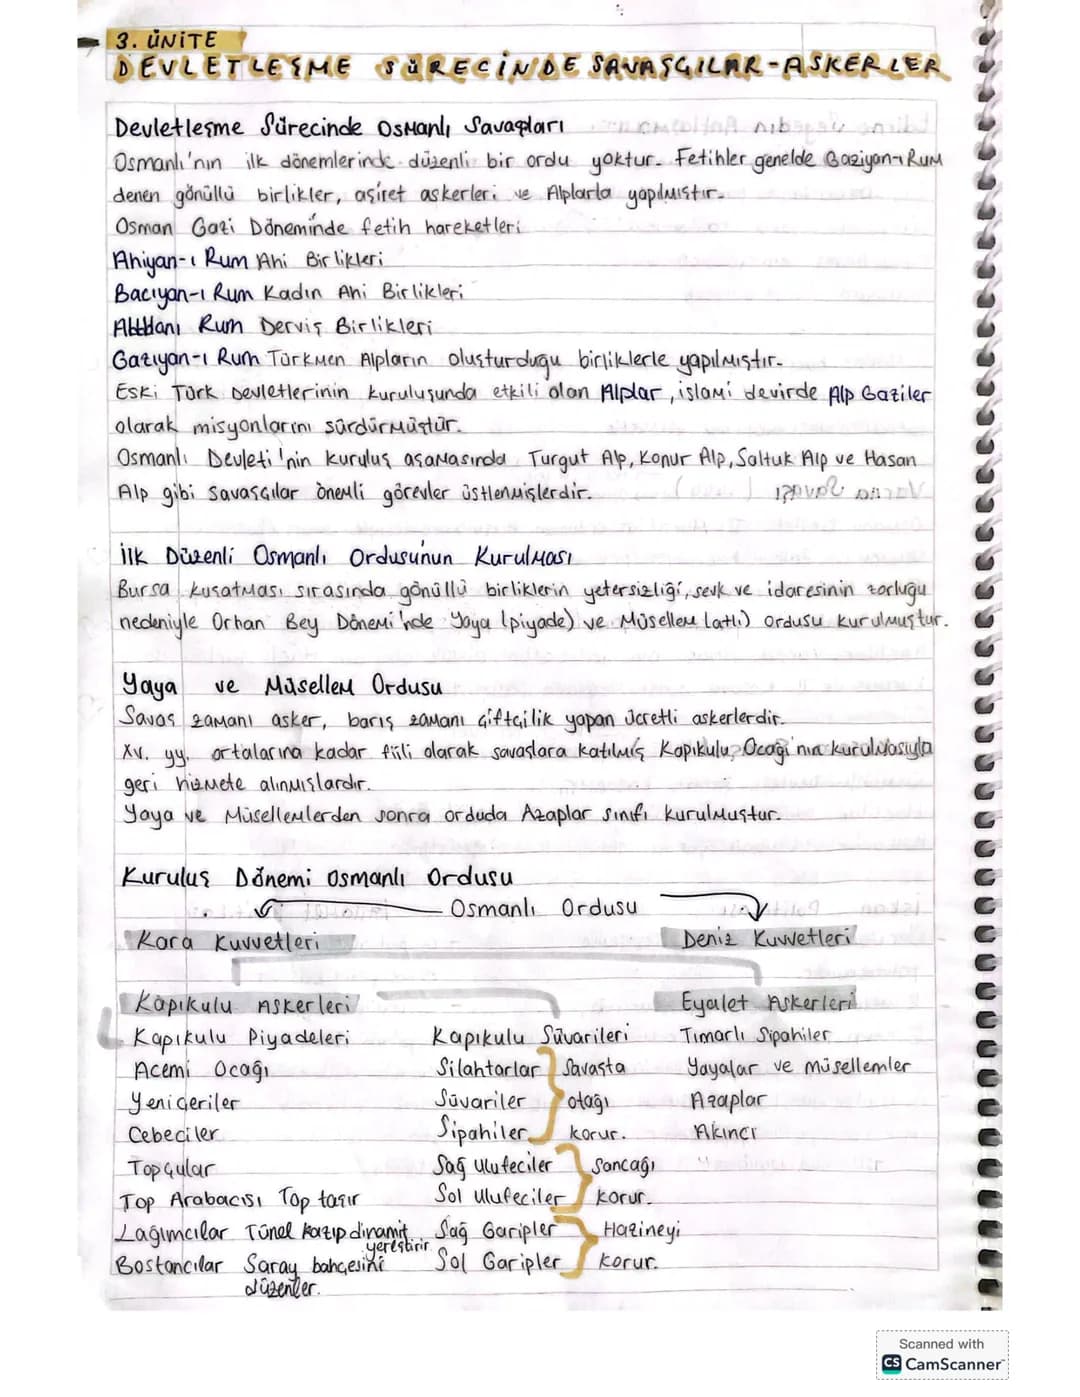 3. ÜNİTE
DEVLETLEŞME SÜRECİNDE SAVAŞÇILAR-ASKERLER
Devletleşme Sürecinde Osmanlı Savaşları
Osmanlı'nın ilk dönemlerinde düzenli bir ordu yoktur. Fetihler genelde Gaziyan-ı Rum
denen gönüllü birlikler, aşiret askerleri ve Alplarla yapılmıştır.
Osman Gazi Döneminde fetih hareketleri
Ahiyan-ı Rum Ahi Birlikleri
Bacıyan-ı Rum Kadın Ahi Birlikleri
Rum Derviş Birlikleri
Gaziyan-ı Rum Türkmen Alpların oluşturduğu birliklerle yapılmıştır.
Eski Türk Devletlerinin kuruluşunda etkili olan Alplar, islami devirde Alp Gaziler
olarak misyonlarını sürdürmüştür.
Osmanlı Devleti'nin kuruluş aşamasında Turgut Alp, Konur Alp, Saltuk Alp ve Hasan
Alp gibi savaşçılar önemli görevler üstlenmişlerdir.
İlk Düzenli Osmanlı Ordusunun Kurulması
Bursa kuşatması sırasında gönüllü birliklerin yetersizliği, sevk ve idaresinin zorluğu
nedeniyle Orhan Bey Dönemi'nde Yaya (piyade) ve Müsellem (atlı) ordusu kurulmuştur.
Yaya ve Müsellem Ordusu
Savaş zamanı asker, barış zamanı çiftçilik yapan ücretli askerlerdir.
XV. yy. ortalarına kadar fiili olarak savaşlara katılmış Kapıkulu Ocağı'nın kurulmasıyla
geri hizmete alınmışlardır.
Yaya ve Müsellemlerden sonra orduda Azaplar sınıfı kurulmuştur.
Kuruluş Dönemi Osmanlı Ordusu
Osmanlı Ordusu
Kara Kuvvetleri Deniz Kuvvetleri
Kapıkulu Askerleri Eyalet Askerleri
Kapıkulu Piyadeleri Kapıkulu Süvarileri Tımarlı Sipahiler
Acemi Ocağı Silahtarlar Savaşta Yayalar ve müsellemler
Yeniçeriler Süvariler otağı Azaplar
Cebeciler Sipahiler korur. Akıncı
Topçular Sağ Ulufeciler Sancağı
Top Arabacısı Top taşır Sol Ulufeciler korur.
Lağımcılar Tünel kazıp dinamit Sağ Garipler Hazineyi
yerleştirir
Bostancılar Saray bahçesini Sol Garipler korur.
düzenler.
Scanned with
CS CamScanner